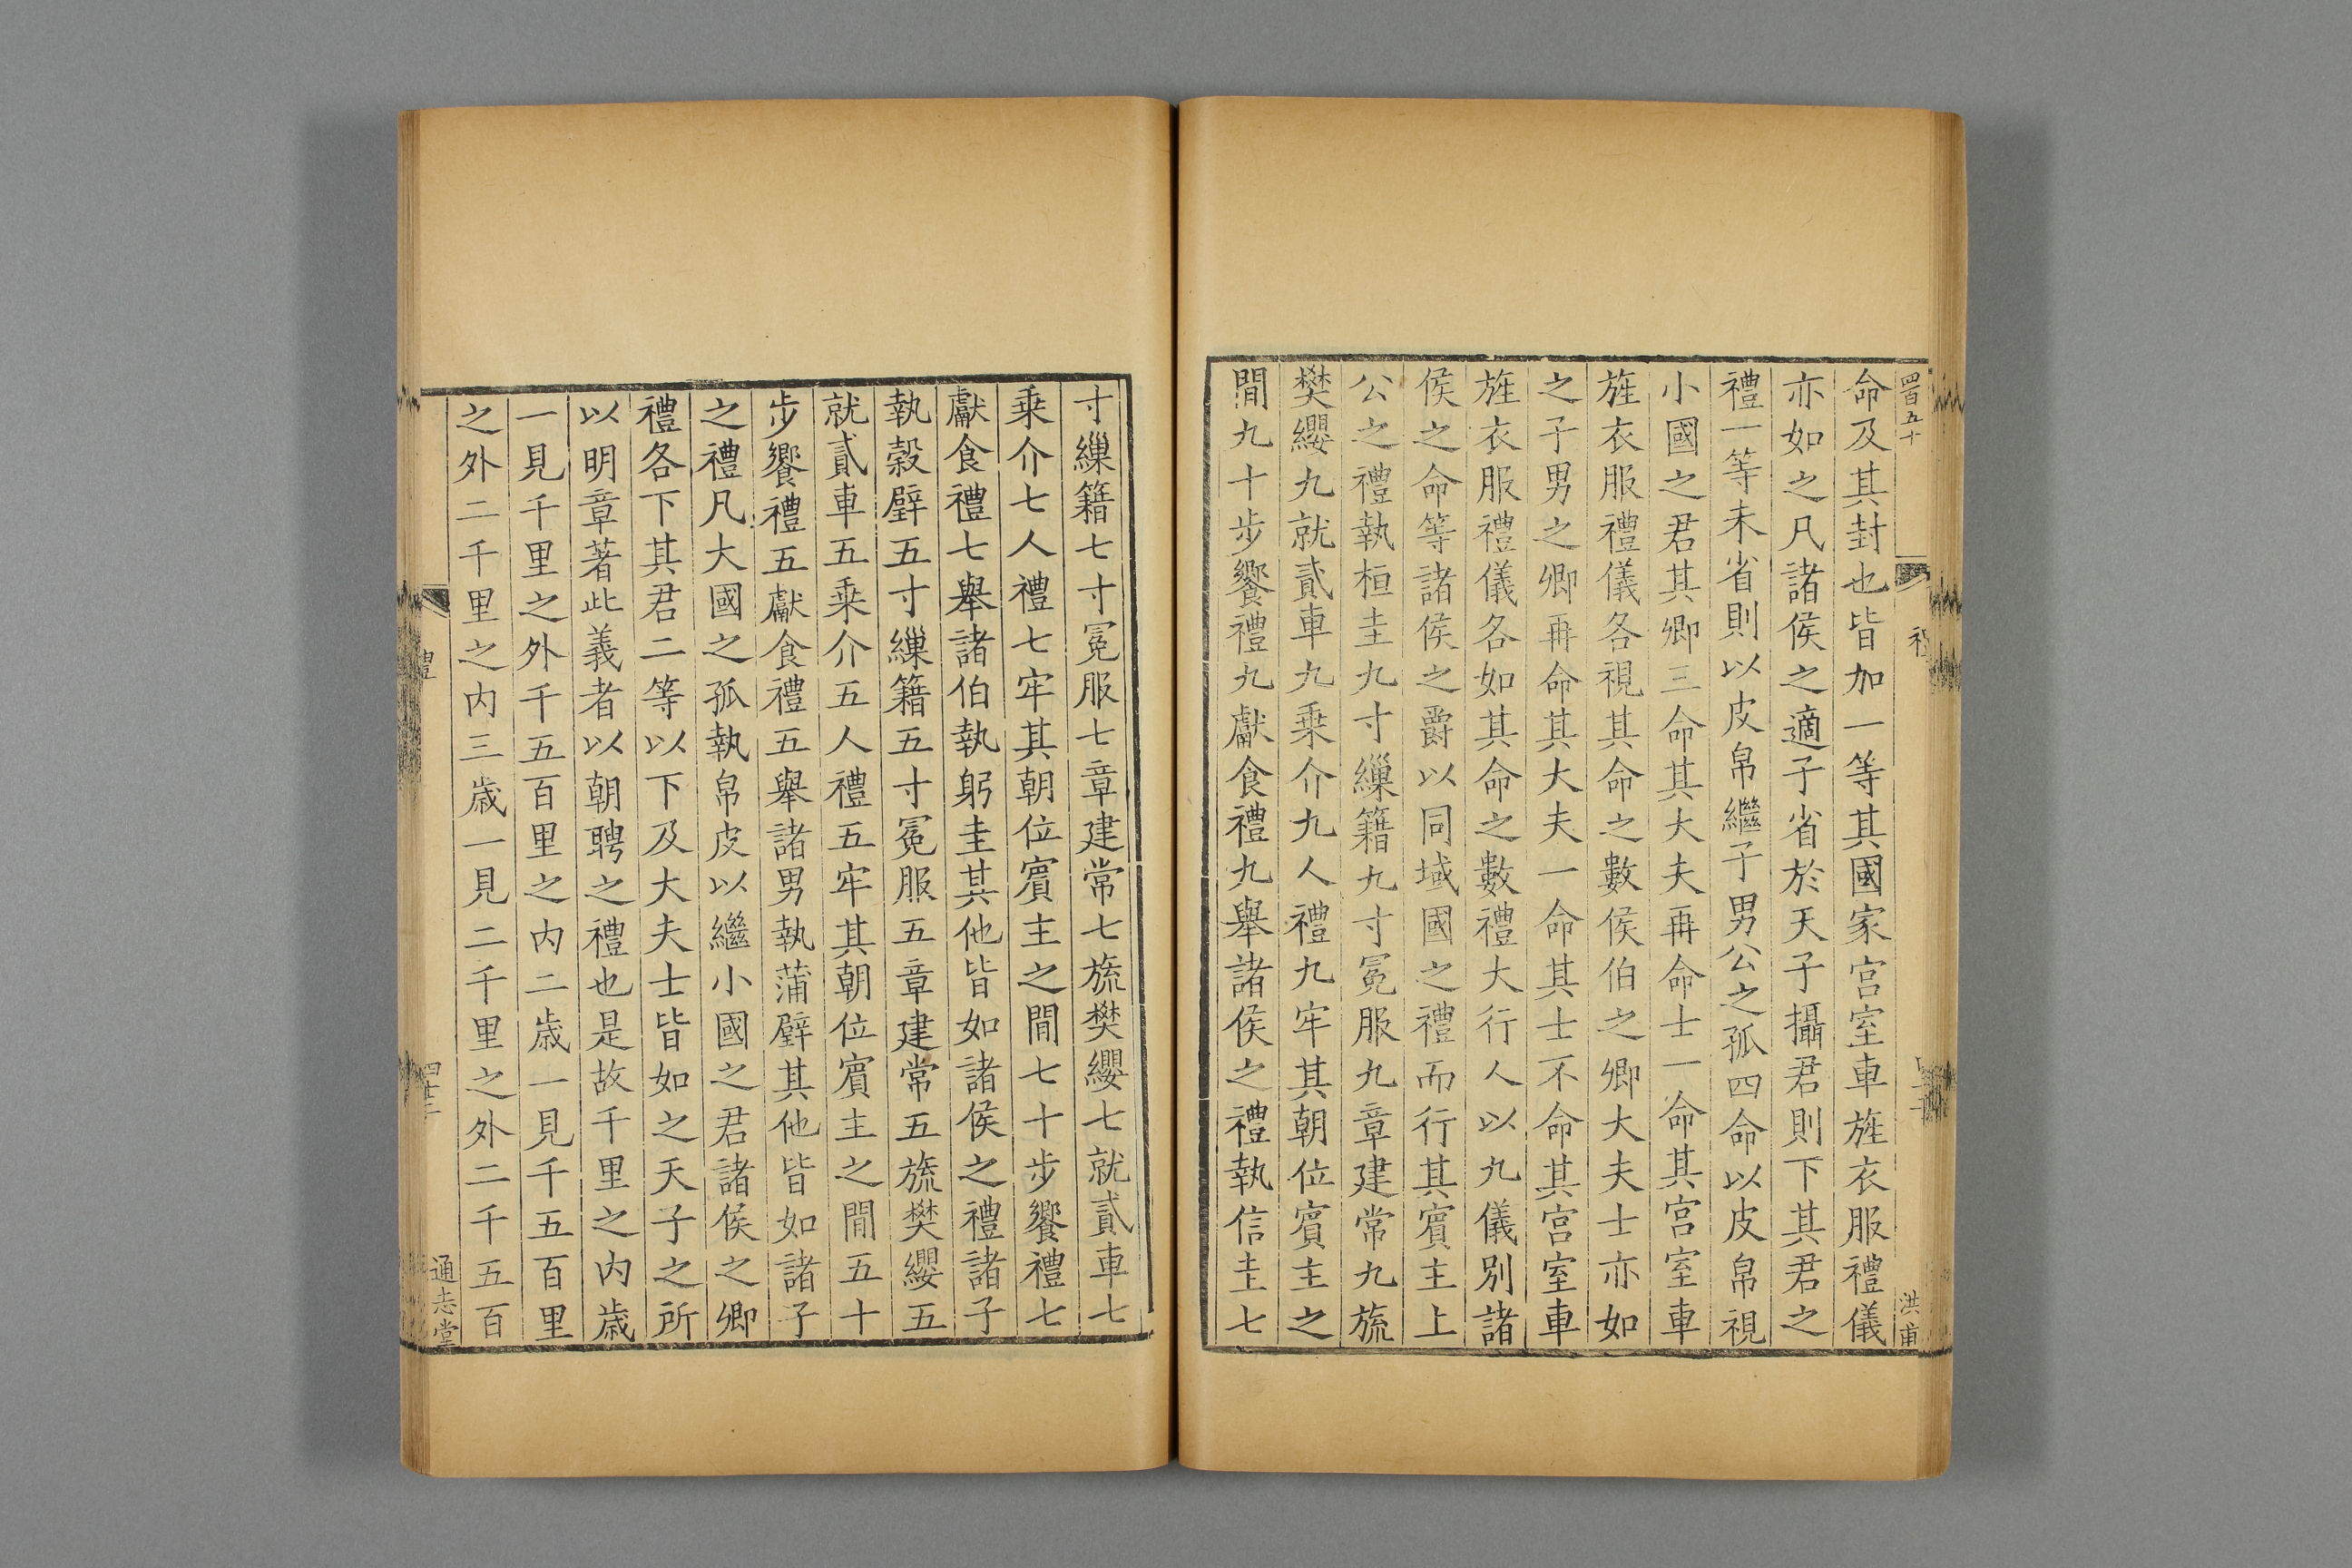 命及其封也皆加一等其國家宮室車旌衣服禮儀
亦如之凡諸侯之適子省於天子攝君則下其君之
禮一等未省則以皮帛繼子男公之孤四命以皮帛視
小國之君其卿三命其大夫再命士一命其宮室車
旌衣服禮儀各視其命之數侯伯之卿大夫士亦如
之子男之卿再命其大夫一命其士不命其宮室車
旌衣服禮儀各如其命之數禮大行人以九儀別諸
侯之命等諸侯之爵以同域國之禮而行其賔主上
公之禮執桓圭九寸繅籍九寸冕服九章建常九旒
樊纓九就貳車九乗介九人禮九牢其朝位賔主之
間九十步饗禮九獻食禮九舉諸侯之禮執信圭七
洪甫
寸繅籍七寸冕服七章建常七旒樊纓七就貳車七
乗介七人禮七牢其朝位賔主之間七十步饗禮七
獻食禮七舉諸伯執躬圭其他皆如諸侯之禮諸子
執榖璧五寸繅籍五寸冕服五章建常五旒樊纓五
就貳車五乗介五人禮五牢其朝位賔主之間五十
步饗禮五獻食禮五舉諸男執蒲璧其他皆如諸子
之禮凡大國之孤執帛皮以繼小國之君諸侯之卿
禮各下其君二等以下及大夫士皆如之天子之所
以明章著此義者以朝聘之禮也是故千里之内歲
一見千里之外千五百里之内二歲一見千五百里
之外二千里之内三歲一見二千里之外二千五百
通志堂